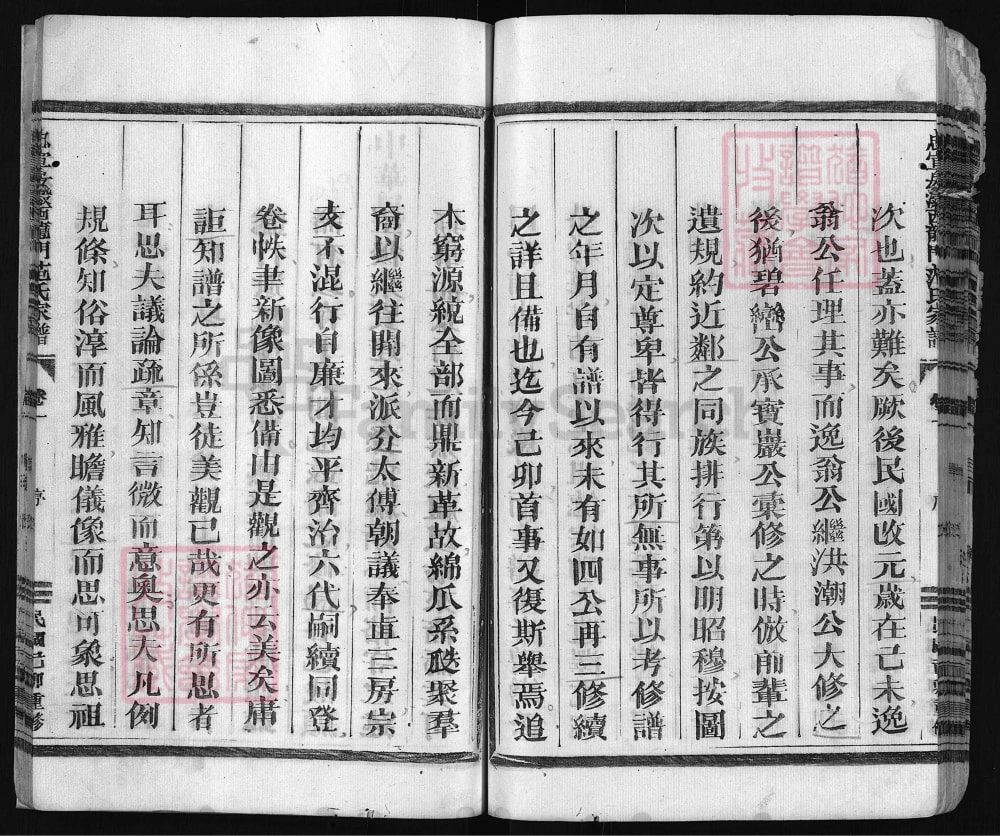 次也蓋亦難矣厥後民國改元歲在己未逸
翁公任理其事而逸翁公繼洪潮公大修之
後猶碧巒公承寶巖公彙修之時倣前輩之
遺規約近鄰之同族排行第以明昭穆按圖
次以定尊卑皆得行其所無事所以考修譜
之年月自有譜以來未有如四公再三修續
之詳且備也迄今己卯首事又復斯舉焉追
本窮源統全部而鼎新革故綿瓜系瓞聚羣
裔以繼往開來派分太傅朝議奉直三房宗
支不混行自廉才均平齊治六代嗣續同登
卷帙聿新像圖悉備由是觀之亦云美矣庸
詎知譜之所係豈徒美觀已哉更有所思者
耳思夫議論疏章知言微而意奧思夫凡例
規條知俗淳而風雅瞻儀像而思可象思祖
龍門范氏家譜
卷一
序
民國己卯重修
FamilySearch